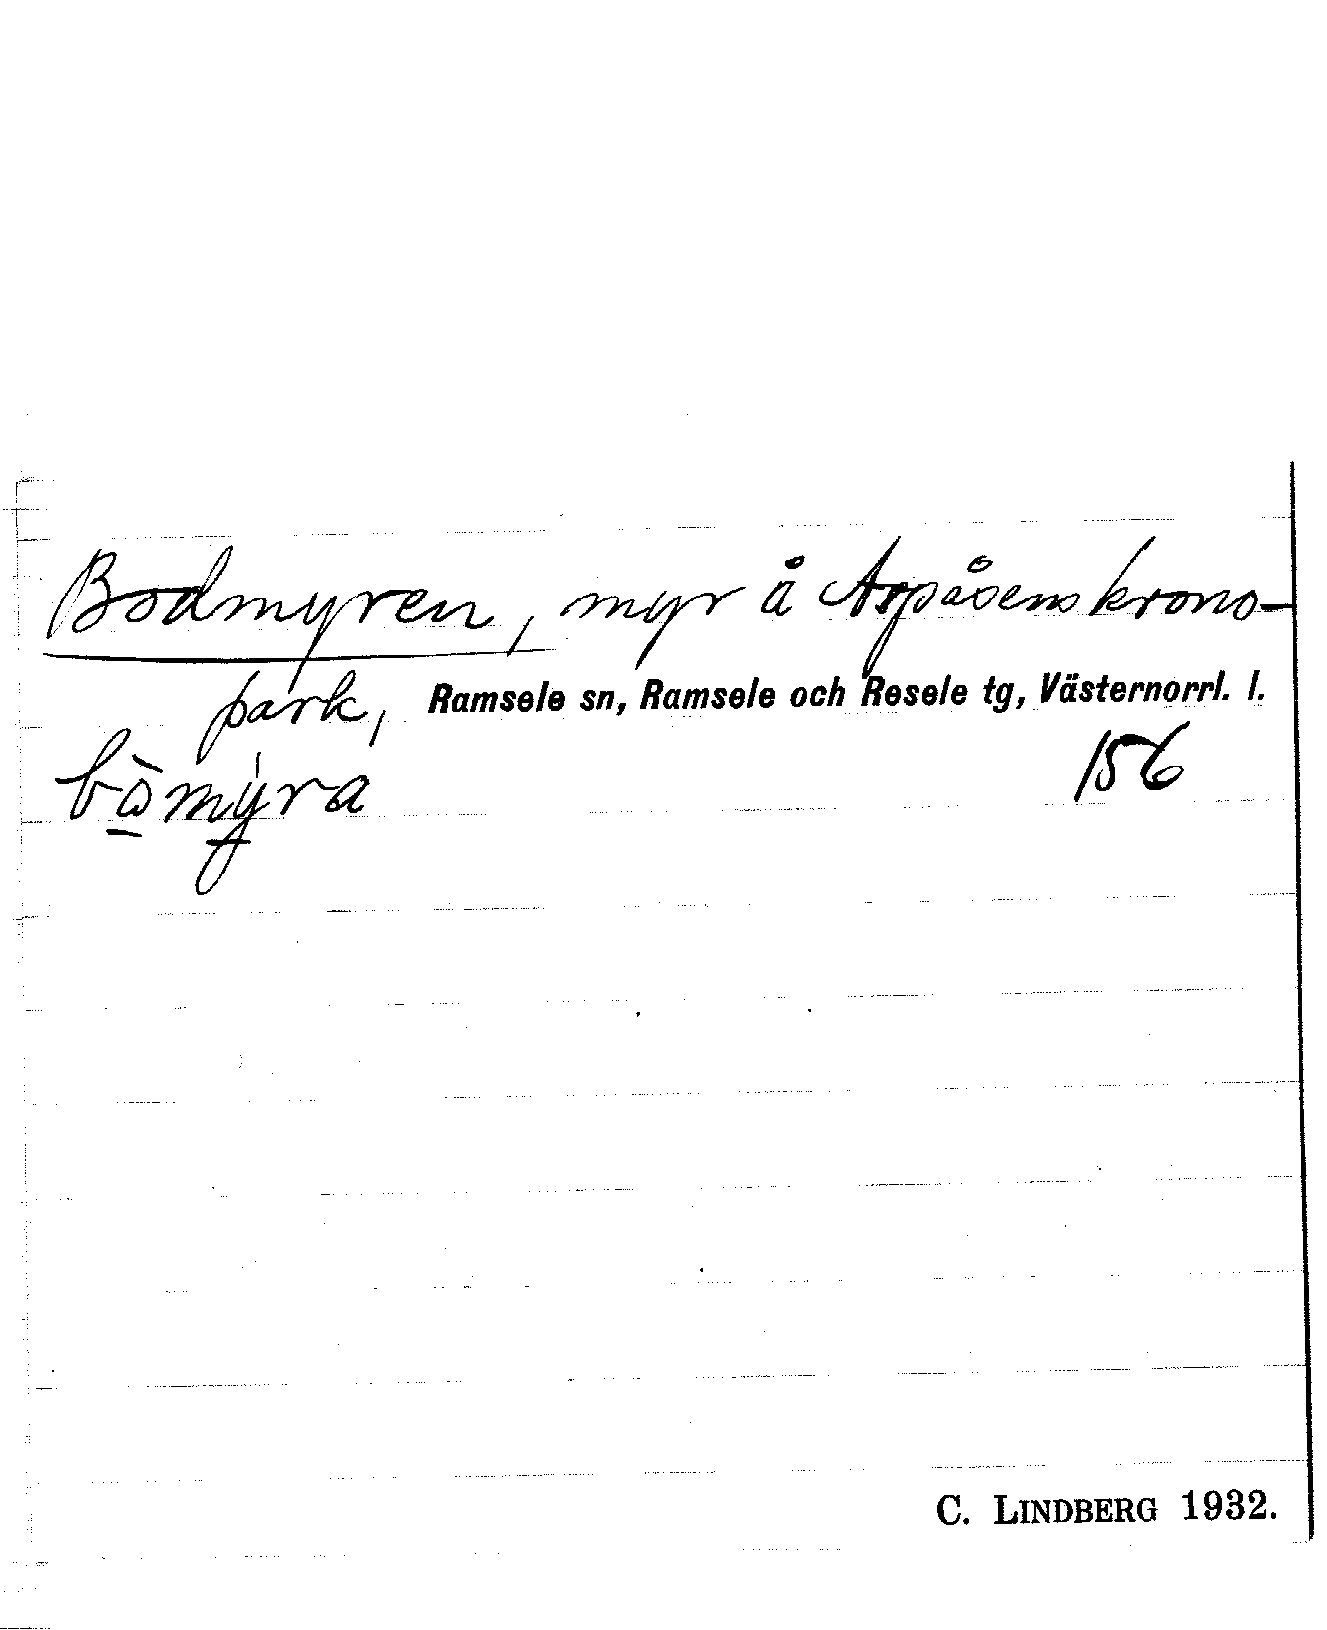 Bodmyren, myr å Aspåsens krono-
park, Ramsele sn, Ramsele och Resele tg, Västernorrl. l.
bòmýra 156
C. LINDBERG 1932.